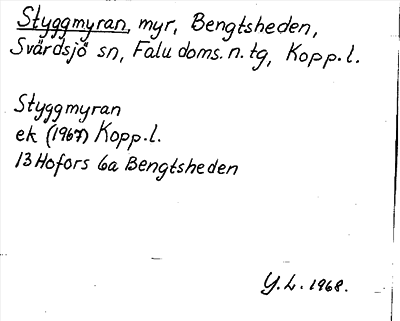 Styggmyran, myr, Bengtsheden,
Svärdsjö sn, Falu doms. n. tg, Kopp. l.
Styggmyran
ek (1967) Kopp. l.
13 Hofors 6a Bengtsheden
Y. L. 1968.